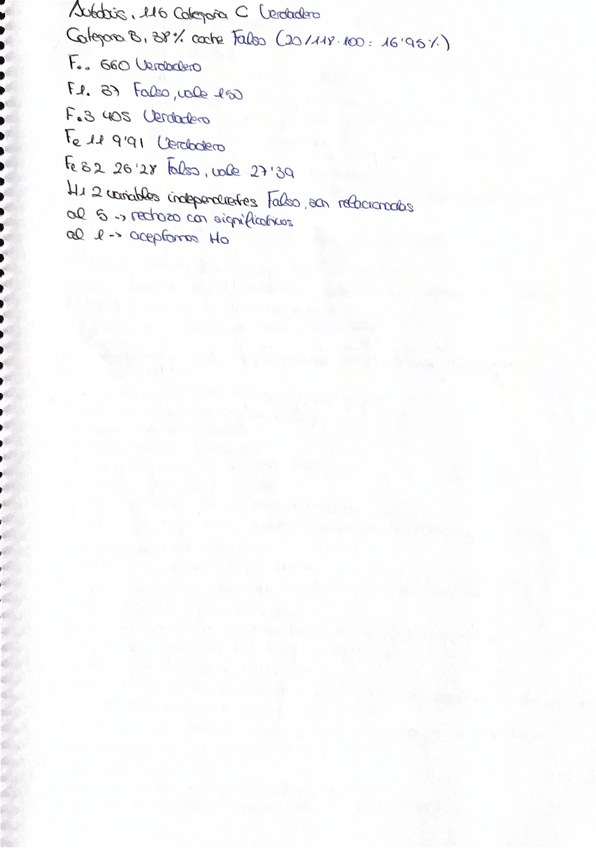 Autobús, 116 Categoría C Verdadero
Categoría B, 38% coche Falso (20/118·100 = 16'95%)
F.. 660 Verdadero
F1. 37 Falso, vale 150
F.3 405 Verdadero
Fe 11 9'91 Verdadero
Fe 32 26'28 Falso, vale 27'39
H1 2 variables independientes Falso, son relacionadas
al 5 -> rechazo con significativos
al 1 -> aceptamos Ho